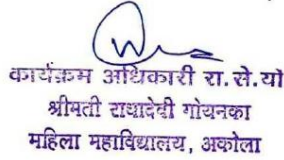 कार्यक्रम अधिकारी रा.से.यो
श्रीमती राधादेवी गोयनका
महिला महाविद्यालय, अकोला